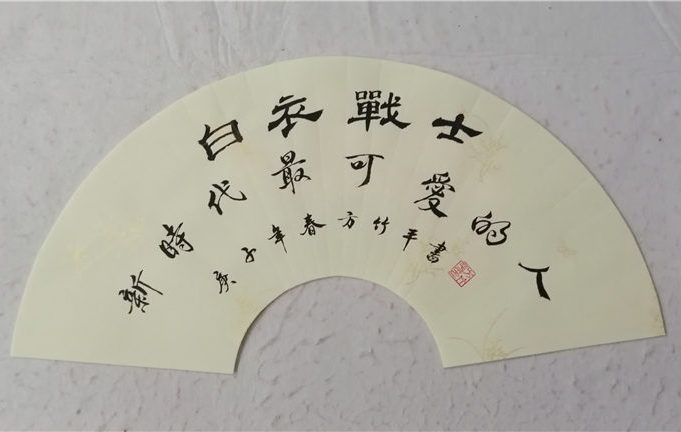 白衣戰士
新時代最可愛的人
庚子年春方竹平書